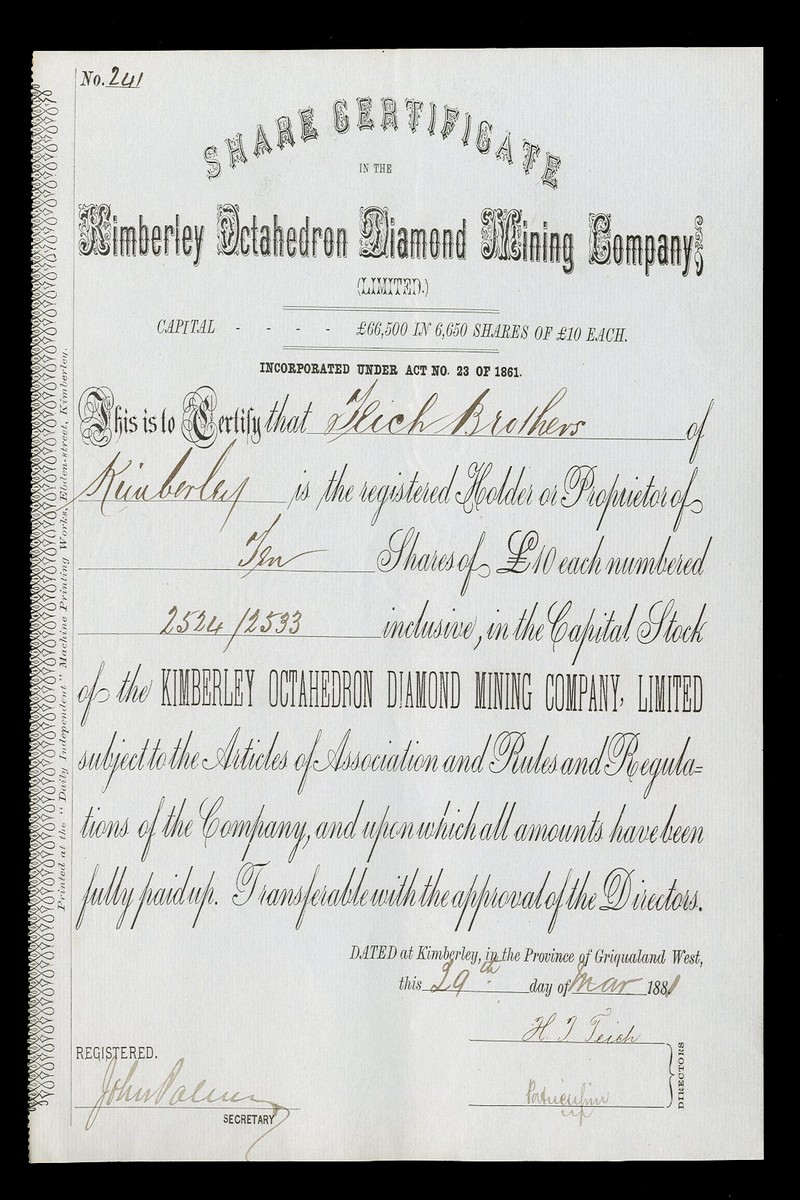 No. 241
SHARE CERTIFICATE
IN THE
Kimberley Octahedron Diamond Mining Company,
(LIMITED.)
CAPITAL - - - - £66,500 IN 6,650 SHARES OF £10 EACH.
INCORPORATED UNDER ACT NO. 23 OF 1861.
This is to Certify that Teich Brothers of
Kimberley is the registered Holder or Proprietor of
Ten Shares of £10 each numbered
2524/2533 inclusive, in the Capital Stock
of the KIMBERLEY OCTAHEDRON DIAMOND MINING COMPANY, LIMITED
subject to the Articles of Association and Rules and Regula=
tions of the Company, and upon which all amounts have been
fully paid up. Transferable with the approval of the Directors.
DATED at Kimberley, in the Province of Griqualand West,
this 29th day of Mar 1881
H. T Teich
DIRECTORS
REGISTERED.
John Palmer
SECRETARY
Printed at the "Daily Independent" Machine Printing Works, Ebden-street, Kimberley.